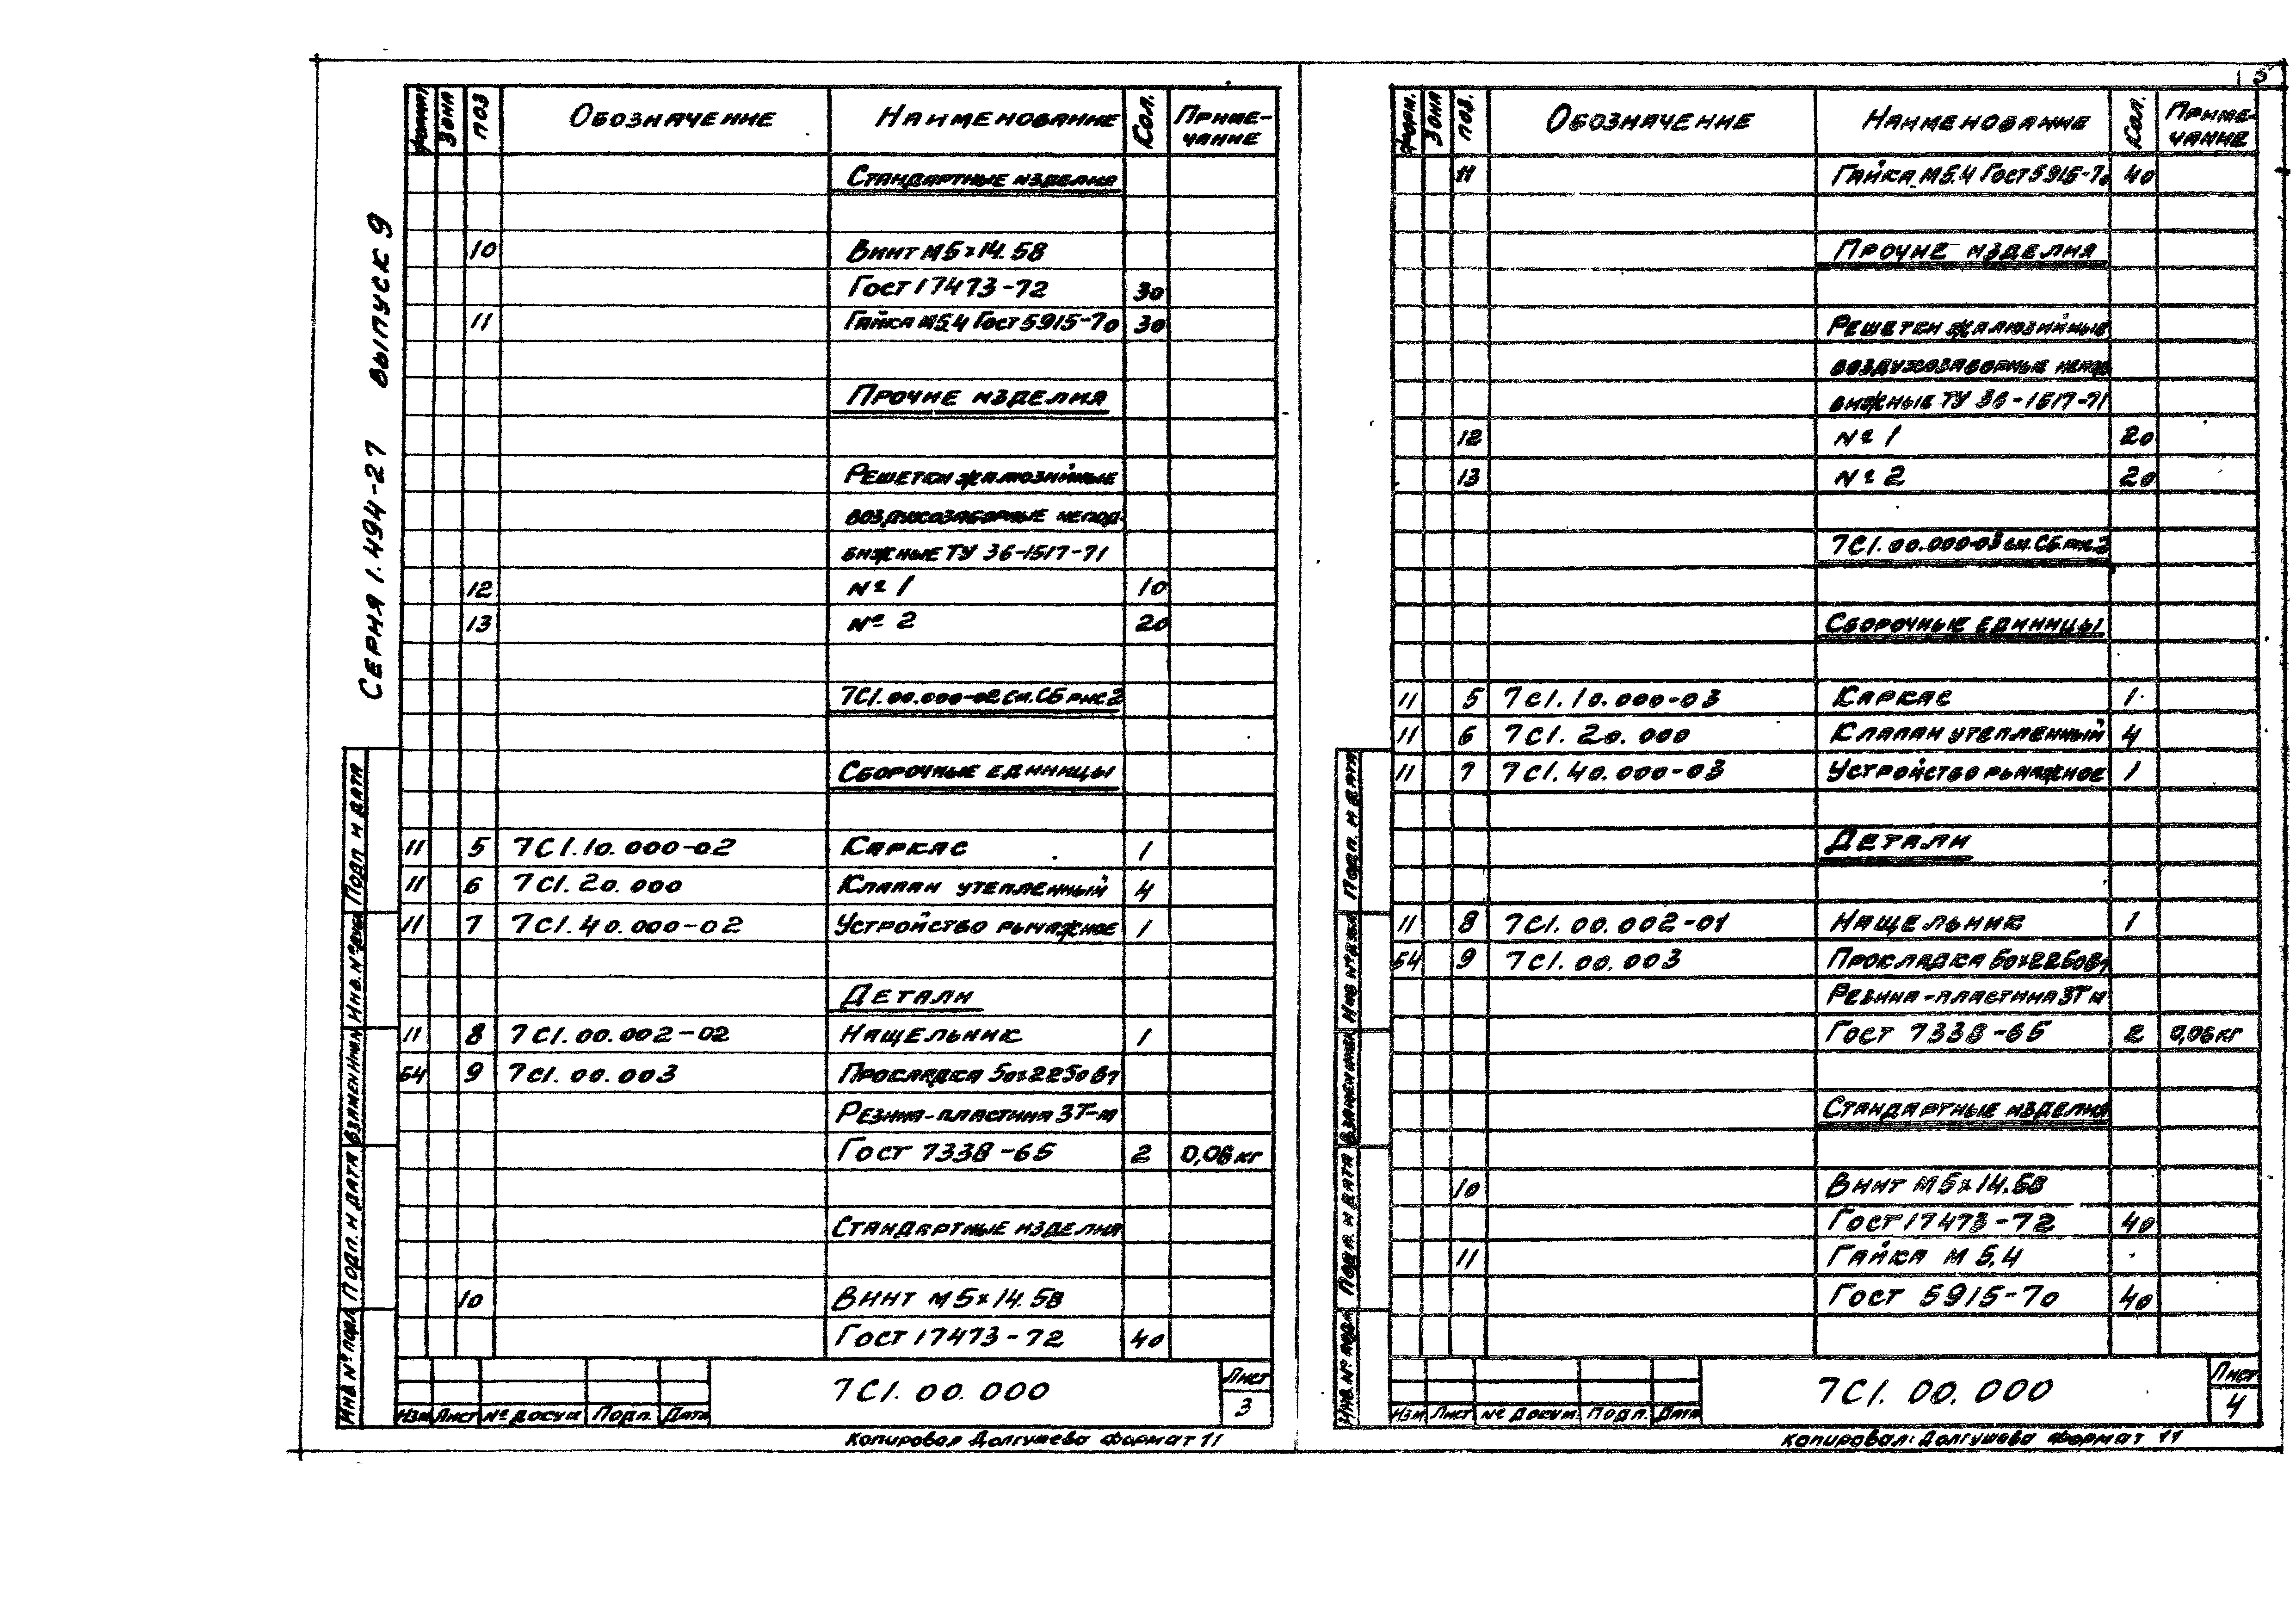 5
Серия 1.494-27 выпуск 9
формат Зона Поз Обозначение Наименование Кол. Приме-
чание
Стандартные изделия
10 Винт М5×14.58
Гост 17473-72 30
11 Гайка М5.4 Гост 5915-70 30
Прочие изделия
Решетки жалюзийные
воздухозаборные непод-
вижные ТУ 36-1517-71
12 № 1 10
13 № 2 20
7С1.00.000-02 см. СБ рис 2
Сборочные единицы
11 5 7С1.10.000-02 Каркас 1
11 6 7С1.20.000 Клапан утепленный 4
11 7 7С1.40.000-02 Устройство рычажное 1
Детали
11 8 7С1.00.002-02 Нащельник 1
Б4 9 7С1.00.003 Прокладка 50×2250
Резина-пластина 3Т-м
Гост 7338-65 2 0,06 кг
Стандартные изделия
10 Винт М5×14.58
Гост 17473-72 40
Инв. № подл Подп. и дата Взамен Инв. № Инв. № Подп. и дата
Изм Лист № докум Подп. Дата
7С1.00.000
Лист
3
Копировал Долгушева Формат 11
Форм. Зона Поз. Обозначение Наименование Кол. Приме-
чание
11 Гайка М5.4 Гост 5915-70 40
Прочие изделия
Решетки жалюзийные
воздухозаборные непод
вижные ТУ 36-1517-71
12 № 1 20
13 № 2 20
7С1.00.000-03 см. СБ рис. 2
Сборочные единицы
11 5 7С1.10.000-03 Каркас 1
11 6 7С1.20.000 Клапан утепленный 4
11 7 7С1.40.000-03 Устройство рычажное 1
Детали
11 8 7С1.00.002-01 Нащельник 1
Б4 9 7С1.00.003 Прокладка 50×2250
Резина-пластина 3Т м
Гост 7338-65 2 0,06 кг
Стандартные изделия
10 Винт М5×14.58
Гост 17473-72 40
11 Гайка М 5,4
Гост 5915-70 40
Инв. № подл Подп. и дата Взамен Инв. № Подп. и дата
Изм Лист № докум. Подп. Дата
7С1.00.000
Лист
4
Копировал: Долгушева Формат 11